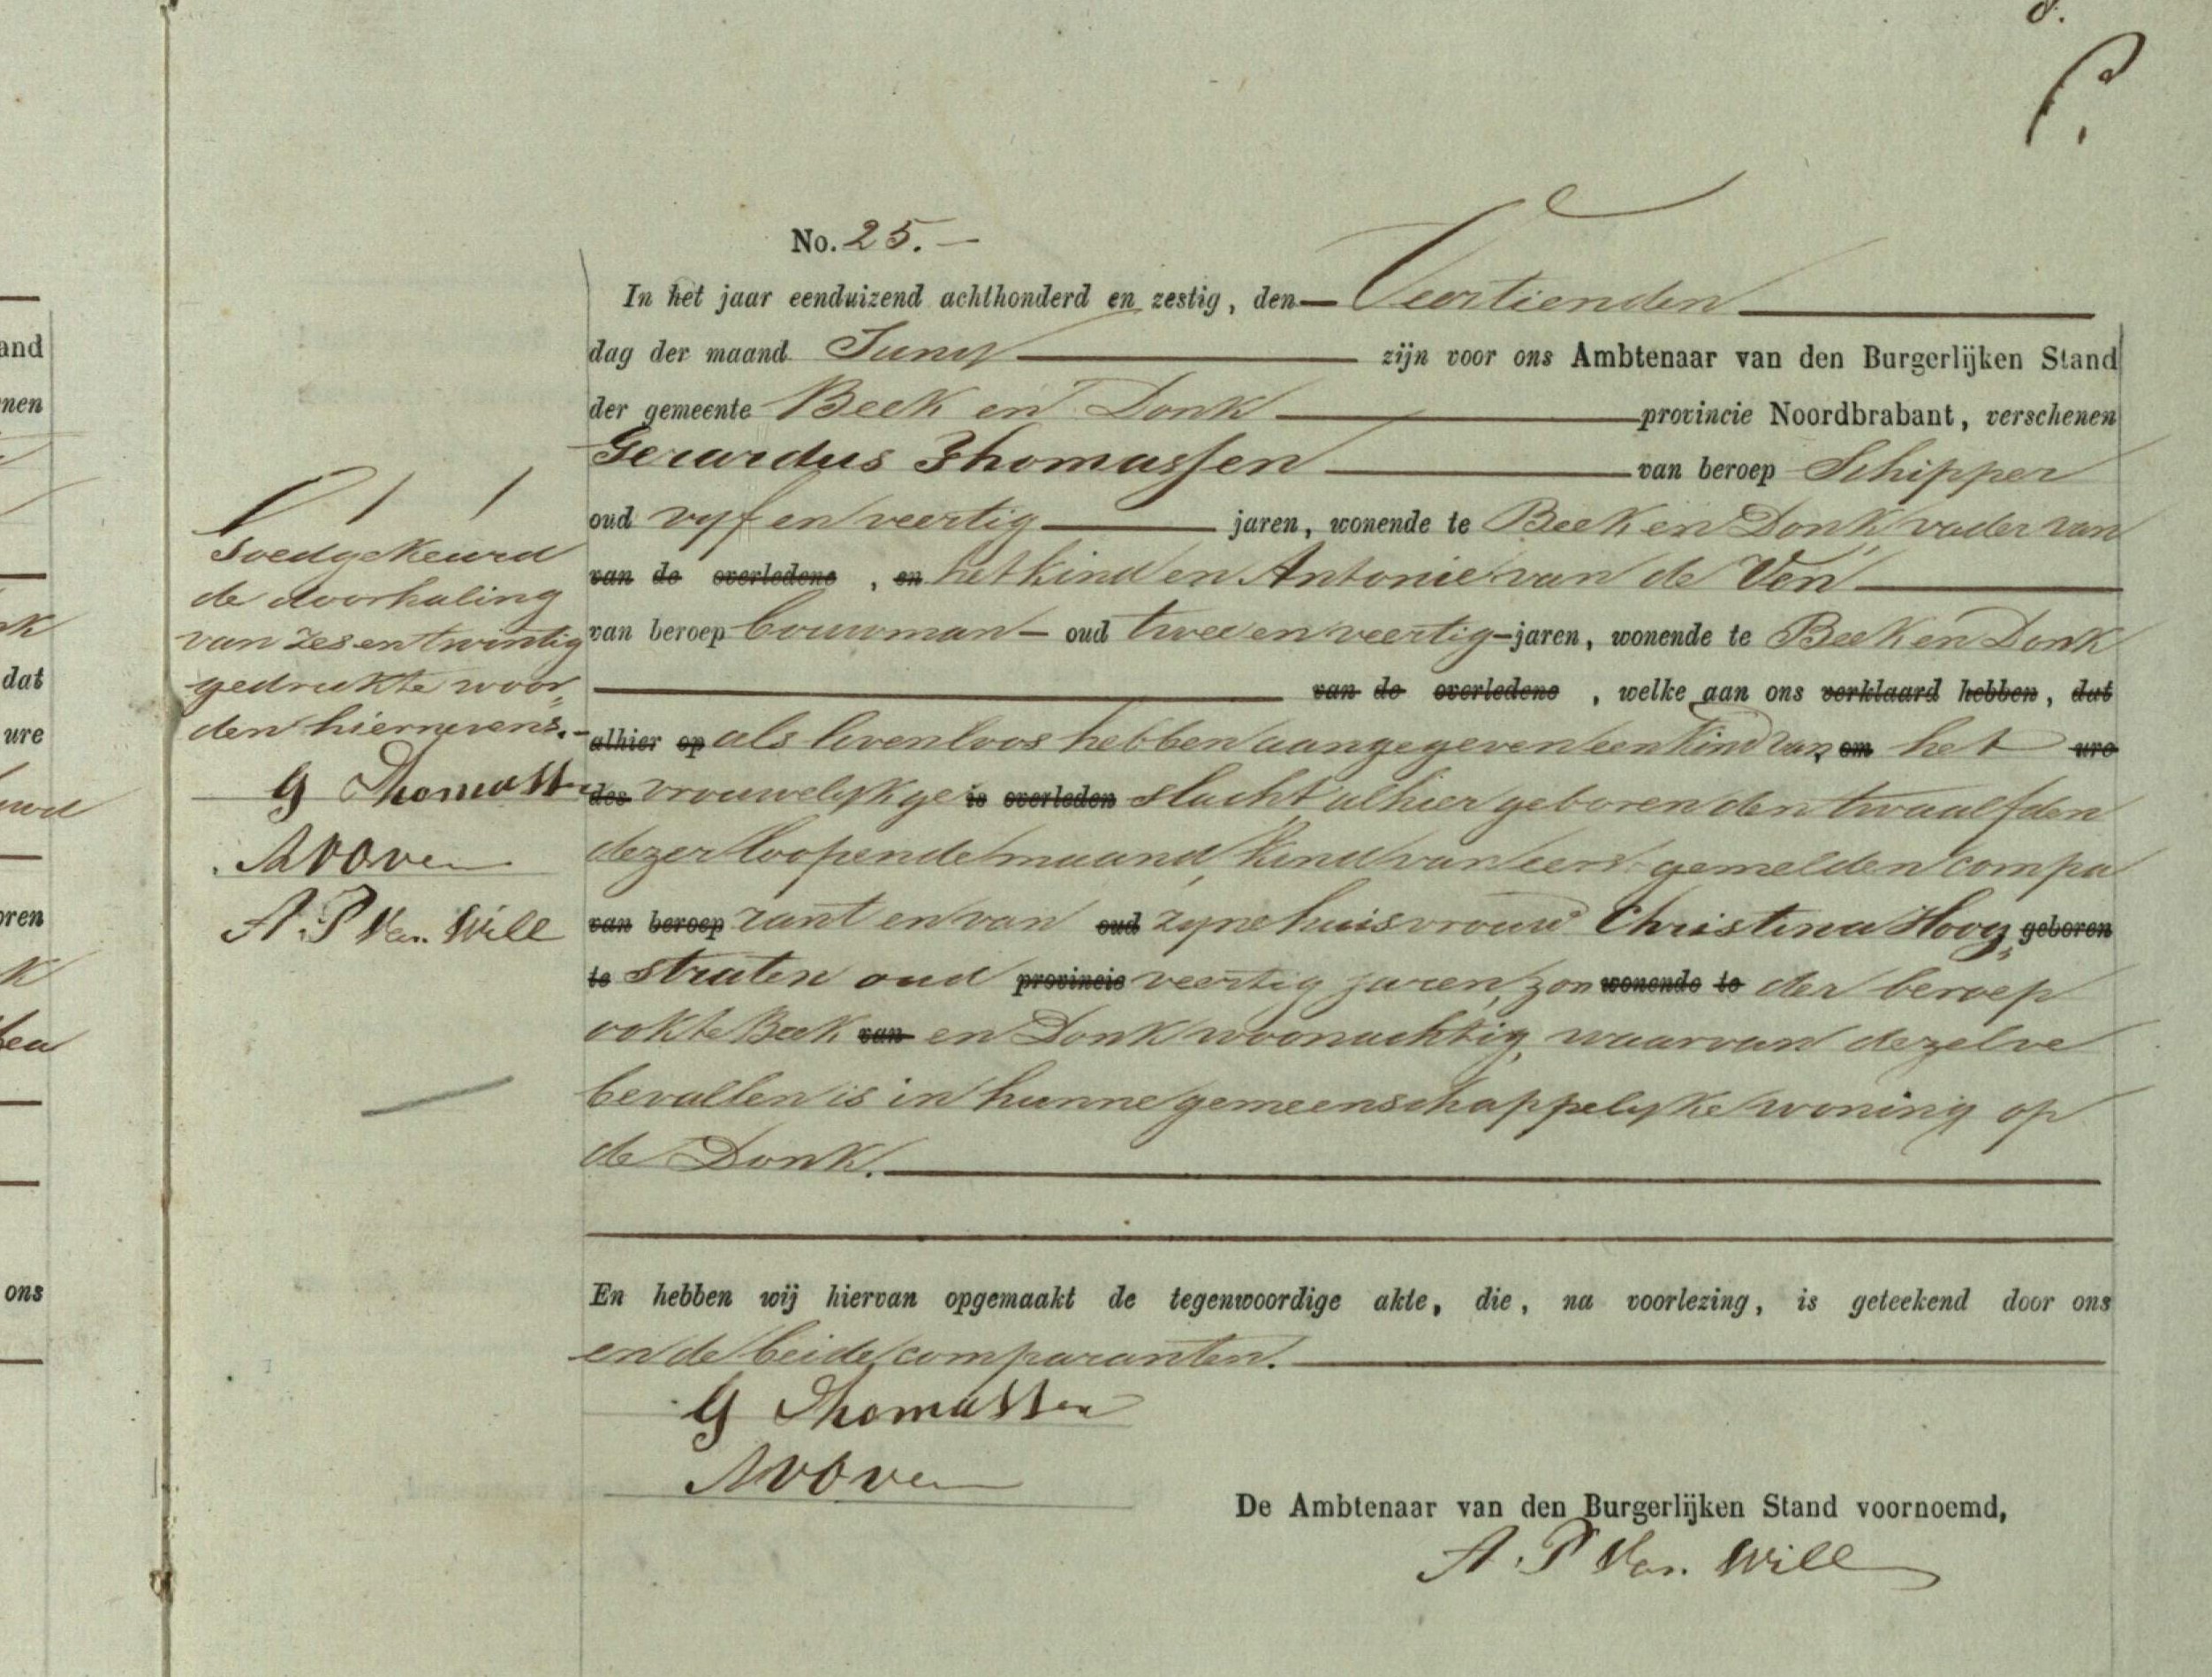 No. 25. —
In het jaar eenduizend achthonderd en zestig, den Veertienden
dag der maand Juny zijn voor ons Ambtenaar van den Burgerlijken Stand
der gemeente Beek en Donk provincie Noordbrabant, verschenen
Gerardus Thomassen van beroep Schipper
oud vyf en veertig jaren, wonende te Beek en Donk, vader van
van de overledene, en het kind en Antonie van de Ven
van beroep bouwman — oud twee en veertig — jaren, wonende te Beek en Donk
van de overledene, welke aan ons verklaard hebben, dat
alhier op als levenloos hebben aangegeven een kind van om het ure
des vrouwelyk ge is overleden slacht, alhier geboren den twaalfden
dezer loopende maand, kind van eerst gemelden compa
van beroep rant en van oud zyne huisvrouw Christina Hoog geboren
te straten oud provincie veertig jaren, zon wonende te der beroep
ook te Beek van en Donk woonachtig, waarvan dezelve
bevallen is in hunne gemeenschappelyke woning op
de Donk.
En hebben wij hiervan opgemaakt de tegenwoordige akte, die, na voorlezing, is geteekend door ons
en de beide comparanten.
G Thomassen
De Ambtenaar van den Burgerlijken Stand voornoemd,
A. P Van Will
Goedgekeurd
de doorhaling
van zes en twintig
gedrukte woor„
den hiernevens.
G Thomassen
A. P Van Will
and
nen
nk
dat
ure
oren
K
ons